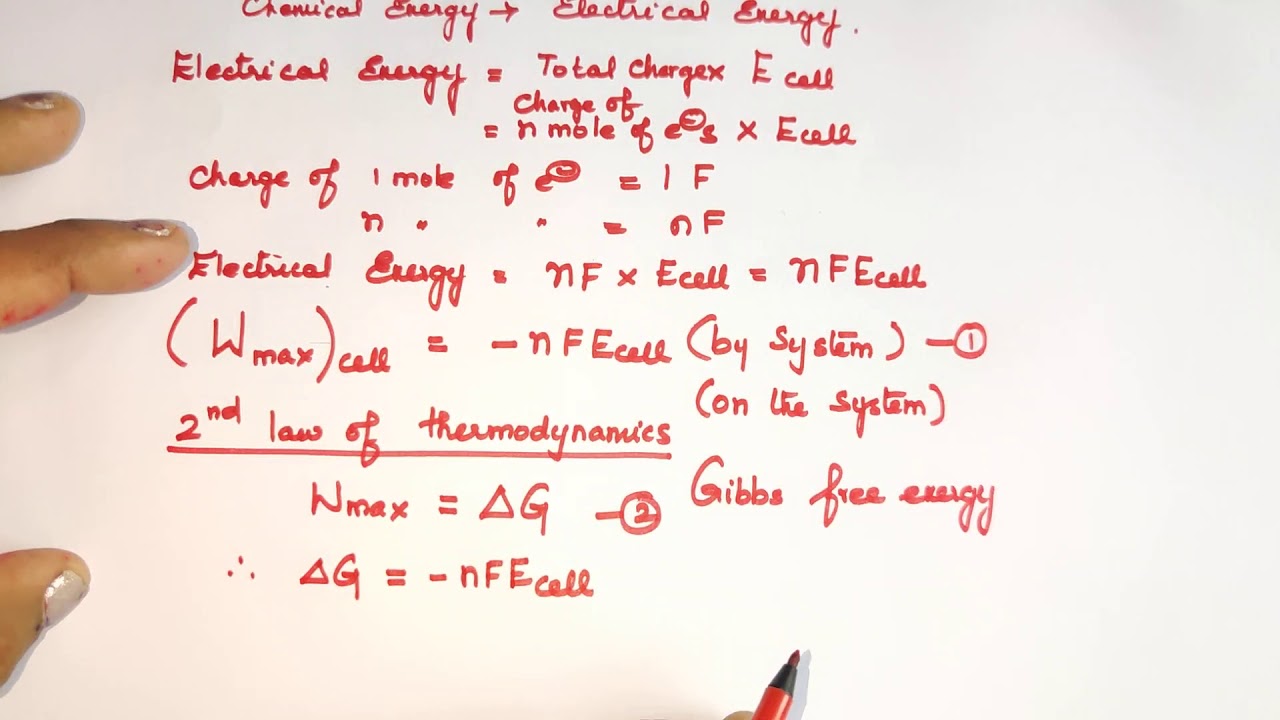 Chemical Energy → Electrical Energy.
Electrical Energy = Total charge× E cell
charge of
= n mole of e⊖s × Ecell
charge of 1 mole of e⊖ = 1 F
n " " = nF
Electrical Energy = nF × Ecell = nFEcell
(Wmax)cell = -nFEcell (by system) —①
(on the system)
2nd law of thermodynamics
Wmax = ΔG —② Gibbs free energy
∴ ΔG = -nFEcell